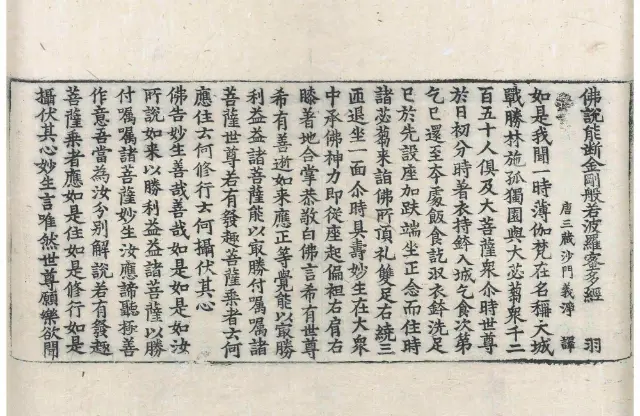 佛說能断金剛般若波羅蜜多經 羽
唐三藏沙門義淨 譯
如是我聞一時薄伽梵在名稱大城
戰勝林施孤獨園與大苾蒭衆千二
百五十人俱及大菩薩衆尒時世尊
於日初分時着衣持鉢入城乞食次第
乞已還至本處飯食訖収衣鉢洗足
已於先設座加趺端坐正念而住時
諸苾蒭来詣佛所頂礼雙足右繞三
匝退坐一面尒時具壽妙生在大衆
中承佛神力即從座起偏袒右肩右
膝着地合掌恭敬白佛言希有世尊
希有善逝如来應正等覺能以㝡勝
利益益諸菩薩能以㝡勝付嘱嘱諸
菩薩世尊若有發趣菩薩乘者云何
應住云何修行云何攝伏其心
佛告妙生善哉善哉如是如是如汝
所說如来以勝利益益諸菩薩以勝
付嘱嘱諸菩薩妙生汝應諦聽極善
作意吾當為汝分别解說若有發趣
菩薩乘者應如是住如是修行如是
攝伏其心妙生言唯然世尊願樂欲聞